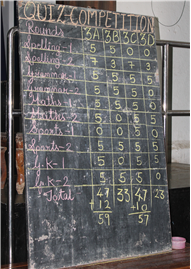 QUIZ-COMPETITION
Rounds 3A 3B 3C 3D
Spelling-1 5 5 0 5
Spelling-2 7 3 7 3
Grammar-1 5 5 5 5
Grammar-2 5 5 5 0
Maths-1 5 0 5 0
Maths-2 5 0 5 5
Sports-1 0 5 0 0
Sports-2 5 5 5
G.K-1 5 5 5
G.K-2 5 5 5 0
Total 47 33 47 23
+12 +10
59 57